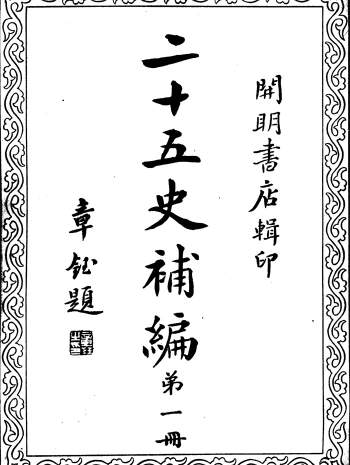 開明書店輯印
二十五史補編
第一冊
章鈺題